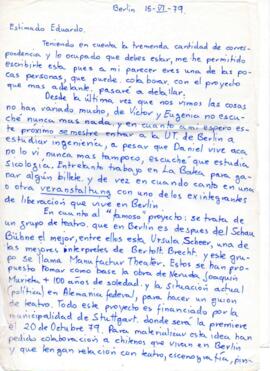 Berlin 15-VI-79.
Estimado Eduardo.
Teniendo en cuenta la tremenda cantidad de corres-
pondencia y lo ocupado que debes estar, me he permitido
escribirte esta pues a mi parecer eres una de las po-
cas personas, que puede colaborar con el proyecto
que mas adelante, pasaré a dar.
Desde la última vez que nos vimos las cosas
no han variado mucho, de Víctor y Eugenia no escu-
ché nunca mas nada, y en cuanto a mi espero es-
te proximo semestre entrar a la U.T. de Berlin a
estudiar ingenieria, a pesar que Daniel vive acá
no lo vi nunca mas tampoco, escuché que estudia
Sicologia. Entretanto trabajo en la para ga-
nar algún billete, y de vez en cuando canto en una
o otra veranstaltung con uno delos exintegrantes
de liberación que vive en Berlin
En cuanto al "famoso" proyecto: se trata de
un grupo de teatro, que en Berlin es despues del Schau
Bühne el mejor, entre ellos esta Ursula Scheer, una de
las mejores interpretes de Bertholt Brecht, y este gru-
po se llama Manufactur Theater. Estos se han pro-
puesto tomar como base la obra de Neruda, Joaquin
Murieta + 100 años de soledad y la situación actual
(politica) en Alemania federal, para hacer un guion
de teatro. Todo este proyecto es financiado por la
municipalidad de Stuttgart, donde será la premiere
el 20 de Octubre 79. Para materializar esta idea han
pedido colaboración a chilenos que vivan en Berlin
y que tengan relación con teatro, escenografia, pin-